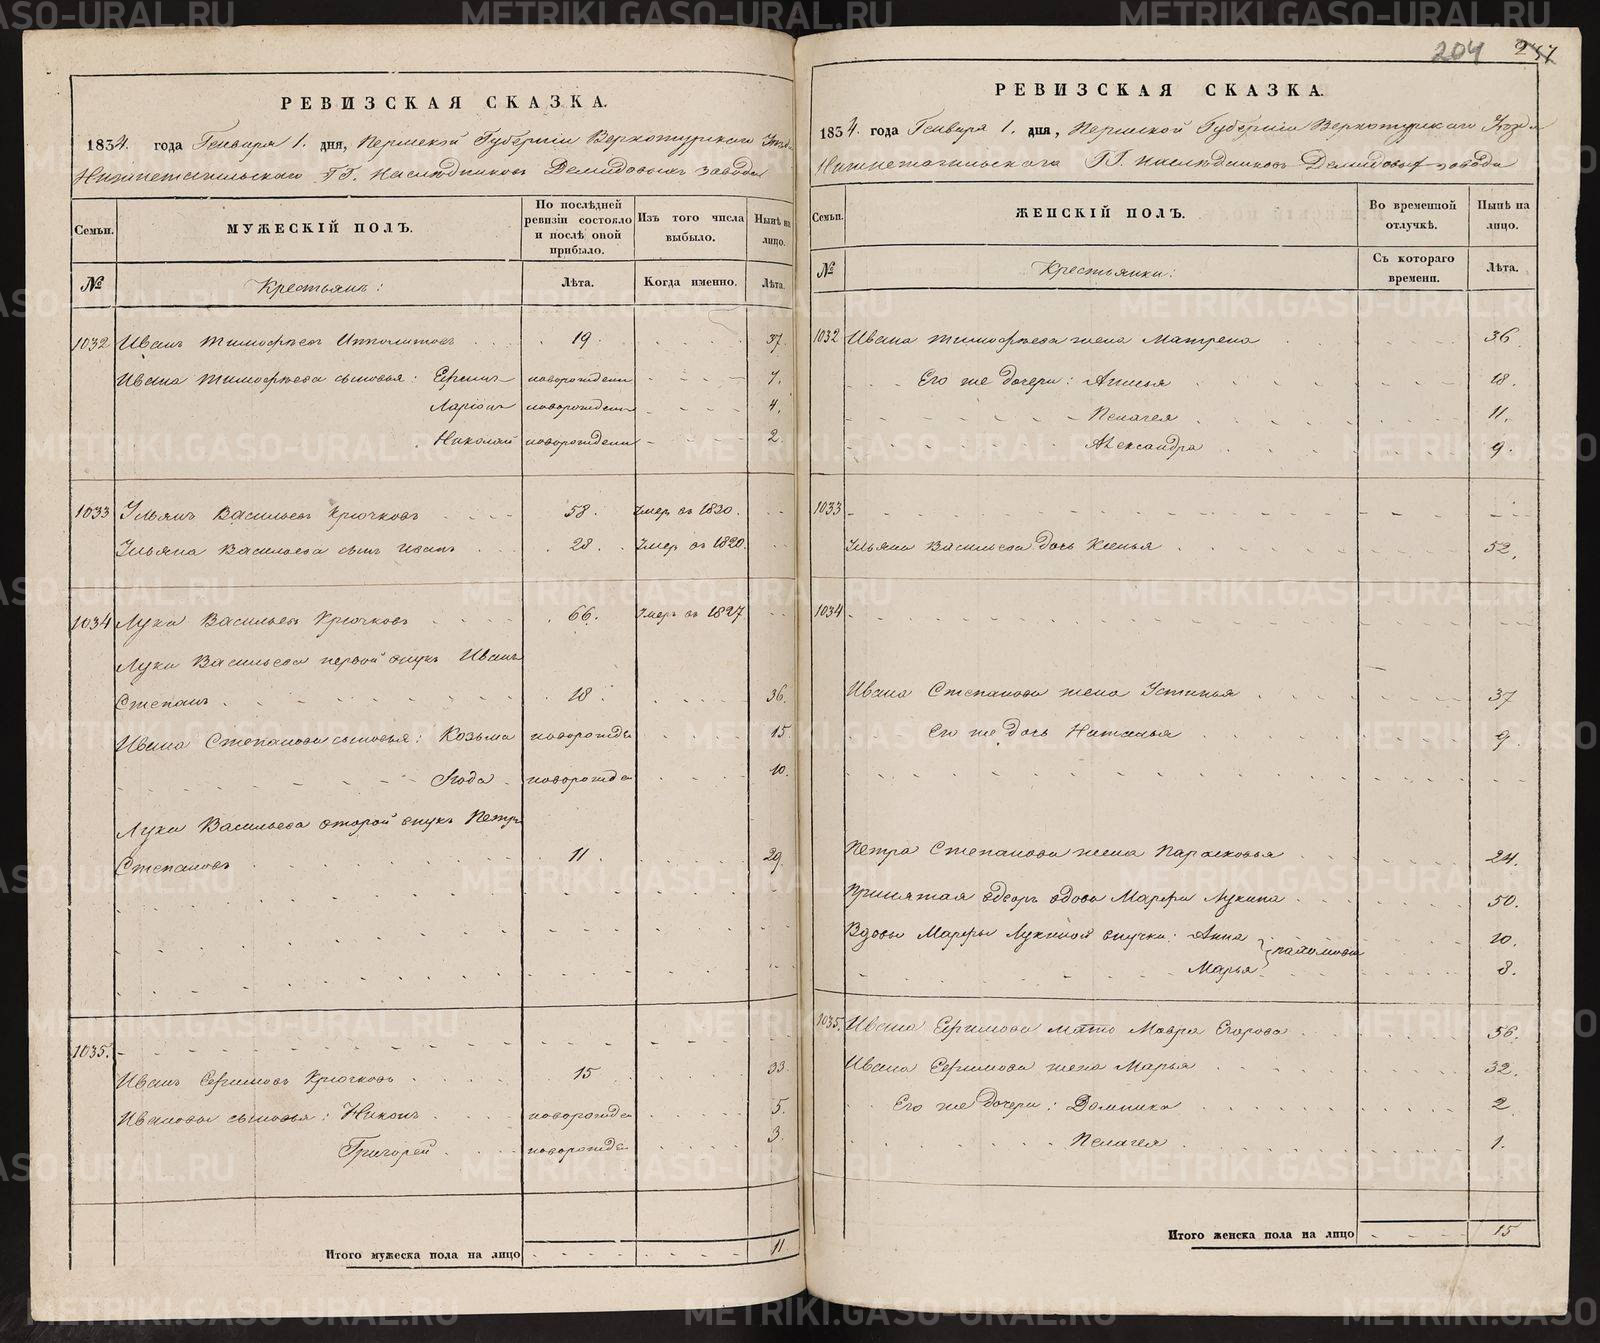 204 247
РЕВИЗСКАЯ СКАЗКА.
1834. года Генваря 1. дня, Пермской Губерніи Верхотурскаго Уезда
Нижнетагильскаго ГГ. Наслѣдниковъ Демидовыхъ завода
Семьи. МУЖЕСКІЙ ПОЛЪ. По послѣдней ревизіи состояло и послѣ оной прибыло. Изъ того числа выбыло. Нынѣ на лицо.
№ Крестьянъ: Лѣта. Когда именно. Лѣта.
1032 Иванъ Тимофѣевъ Ипполитовъ 19. 37.
Ивана Тимофѣева сыновья: Ефимъ новорожденн 7.
Ларіонъ новорожденъ 4.
Николай новорожденн 2
1033 Ульянъ Васильевъ Крючковъ 58. Умеръ въ 1830.
Ульяна Васильева сынъ Иванъ 28. Умеръ въ 1820.
1034 Лука Васильевъ Крючковъ 66. Умеръ въ 1827
Луки Васильева первой внукъ Иванъ
Степанъ 18 36.
Ивана Степанова сыновья: Козьма новорожде 15.
новорожде 10.
Луки Васильева второй внукъ Петръ
Степановъ 11. 29.
1035.
Иванъ Ефимовъ Крючковъ 15 33.
Ивановы сыновья: Никонъ новорожде 5.
Григорей новорожде 3.
Итого мужеска пола на лицо 11
РЕВИЗСКАЯ СКАЗКА.
1834. года Генваря 1. дня, Пермской Губерніи Верхотурскаго Уезда
Нижнетагильскаго ГГ. Наслѣдниковъ Демидовыхъ завода
Семьи. ЖЕНСКІЙ ПОЛЪ. Во временной отлучкѣ. Нынѣ на лицо.
№ Крестьянки: Съ котораго времени. Лѣта.
1032 Ивана Тимофѣева жена Матрена 36
Его же дочери: Анисья 18.
Пелагея 11.
Александра 9.
1033
Ульяна Васильева дочь Ксенья 52.
1034
Ивана Степанова жена Устинья 37
Его же дочь Наталья 9.
Петра Степанова жена Парасковья 24.
Принятая вдворъ вдова Марфа Лукина 50.
Вдовы Марфы Лукиной внучки: Анна 10.
Марья 8.
1035. Ивана Ефимова мать Мавра Егорова 56.
Ивана Ефимова жена Марья 32.
Его же дочери: Домника 2
Пелагея 1.
Итого женска пола на лицо 15
METRIKI.GASO-URAL.RU